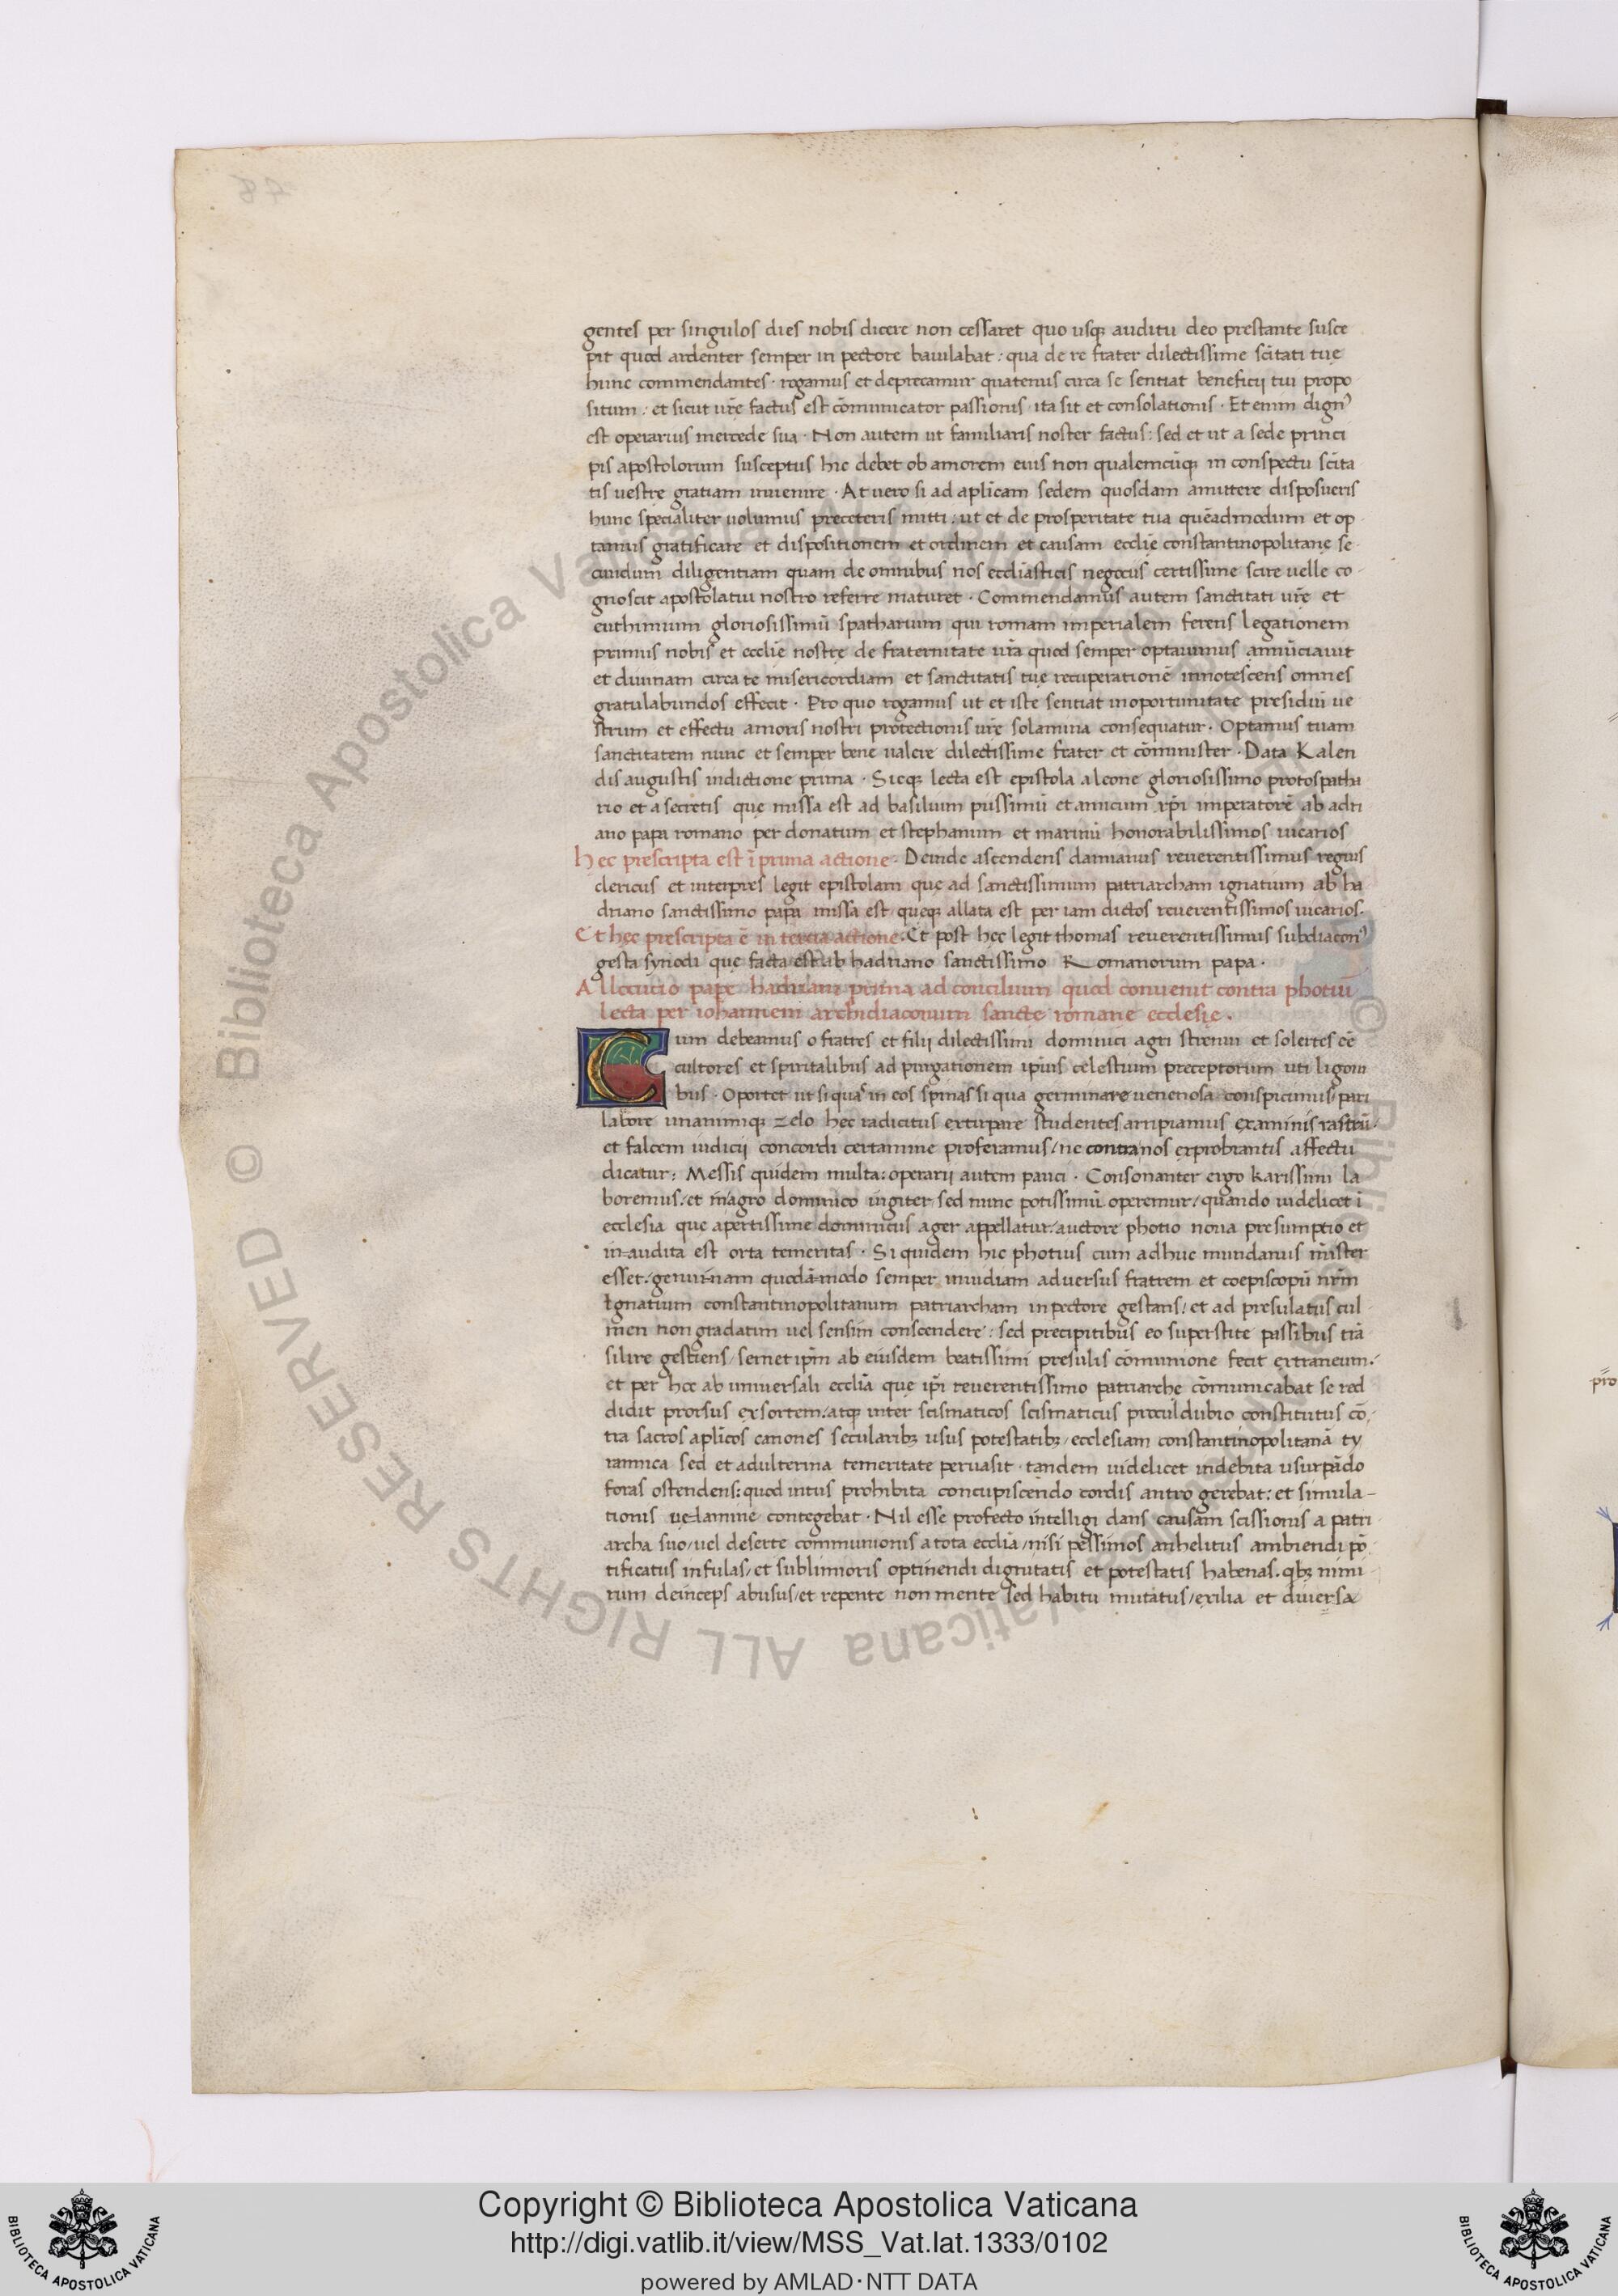 gentes per singulos dies nobis dicere non cessaret quo usqȝ auditu deo prestante susce
pit quod ardenter semper in pectore baiulabat : qua de re frater dilectissime scītati tuę
hunc commendantes · rogamus et deprecamur quatenus circa se sentiat beneficii tui propo
situm : et sicut vr̄e factus est cōmunicator passionis ita sit et consolationis · Et enim dignꝰ
est operarius mercede sua · Non autem ut familiaris noster factus : sed et ut a sede princi
pis apostolorum susceptus hic debet ob amorem eius non qualemcūqȝ in conspectu scīta
tis uestrę gratiam inuenire · At uero si ad aplīcam sedem quosdam amittere disposueris
hunc specialiter uolumus preceteris mitti : ut et de prosperitate tua quēadmodum et op
tamus gratificare et dispositionem et ordinem et causam ecclīe constantinopolitanę se
cundum diligentiam quam de omnibus nos ecclīasticis negocus certissime scire uelle co-
gnoscit apostolatui nostro referre maturet · Commendamus autem sanctitati vr̄e et
euthimium gloriosissimū spatharium qui romam imperialem ferens legationem
primus nobis et ecclīe nostrę de fraternitate vr̄a quod semper optauimus annūciauit
et diuinam circa te misericordiam et sanctitatis tuę recuperationē innotescens omnes
gratulabundos effecit · Pro quo rogamus ut et iste sentiat inoportunitate presidiū ue
strum et effectu amoris nostri protectionis vr̄e solamina consequatur · Optamus tuam
sanctitatem nunc et semper bene ualere dilectissime frater et cōminister · Data Kalen
dis augustis indictione prima · Sicqȝ lecta est epistola a leone gloriosissimo protospatha
rio et a secretis quę missa est ad basilium piissimū et amicum xp̄i imperatorē ab adri
ano papa romano per donatum et stephanum et marinū honorabilissimos uicarios
hec prescripta est ī prima actione · Deinde ascendens damianus reuerentissimus regius
clericus et interpres legit epistolam quę ad sanctissimum patriarcham ignatium ab ha
driano sanctissimo papa missa est queqȝ allata est per iam dictos reuerentissimos uicarios.
Et hęc prescripta ē in tercia actione · Et post hęc legit thomas reuerentissimus subdiaconꝰ
gesta synodi quę facta est ab hadriano sanctissimo Romanorum papa ·
Allocutio pape hadriani prima ad concilium quod conuenit contra photiū
lecta per iohannem archidiaconum sancte romane ecclesię .
Cum debeamus o fratres et filii dilectissimi dominici agri strenui et solertes eē
cultores et spiritalibus ad purgationem ipīus celestium preceptorum uti ligoni
bus · Oportet ut si quas in eos spinas si qua germinare uenenosa conspicimus / pari
labore unanimiqȝ zelo hęc radicitus extirpare studentes arripiamus examinis rastrū ·
et falcem iudicii concordi certamine proferamus / ne contra nos exprobrantis affectu
dicatur : Messis quidem multa : operarii autem pauci · Consonanter ergo karissimi la
boremus / et in agro dominico iugiter sed nunc potissimū operemur / quando uidelicet ī
ecclesia que apertissime dominicus ager appellatur / auctore photio noua presumptio et
in-audita est orta temeritas · Si quidem hic photius cum adhuc mundanus mīster
esset / genuinam quodā-modo semper inuidiam aduersus fratrem et coepiscopū nr̄m
Ignatium constantinopolitanum patriarcham in pectore gestans / et ad presulatus cul
men non gradatim uel sensim conscendere : sed precipitibus eo superstite passibus trā
silire gestiens / semet ipm̄ ab eiusdem beatissimi presulis cōmunione fecit extraneum /
et per hoc ab uniuersali ecclīa que ip̄i reuerentissimo patriarchę cōmunicabat se red
didit prorsus exsortem / atqȝ inter scismaticos scismaticus procul dubio constitutus cō-
tra sacros aplīcos canones secularibȝ usus potestatibȝ / ecclesiam constantinopolitanā ty
rannica sed et adulterina temeritate peruasit · tandem uidelicet indebita usurpādo
foras ostendens : quod intus prohibita concupiscēndo cordis antro gerebat : et simula-
tionis uę-lamine contegebat · Nil esse profecto intelligi dans causam scissionis a patri
archa suo / uel desertę communionis a tota ecclīa / nisi pessimos anhelitus ambiendi pō
tificatus infulas / et sublimioris optinendi dignitatis et potestatis habenas . qbȝ nimi
rum deinceps abusus / et repente non mente sed habitu mutatus / exilia et diuersa
Copyright © Biblioteca Apostolica Vaticana
http://digi.vatlib.it/view/MSS_Vat.lat.1333/0102
powered by AMLAD·NTT DATA